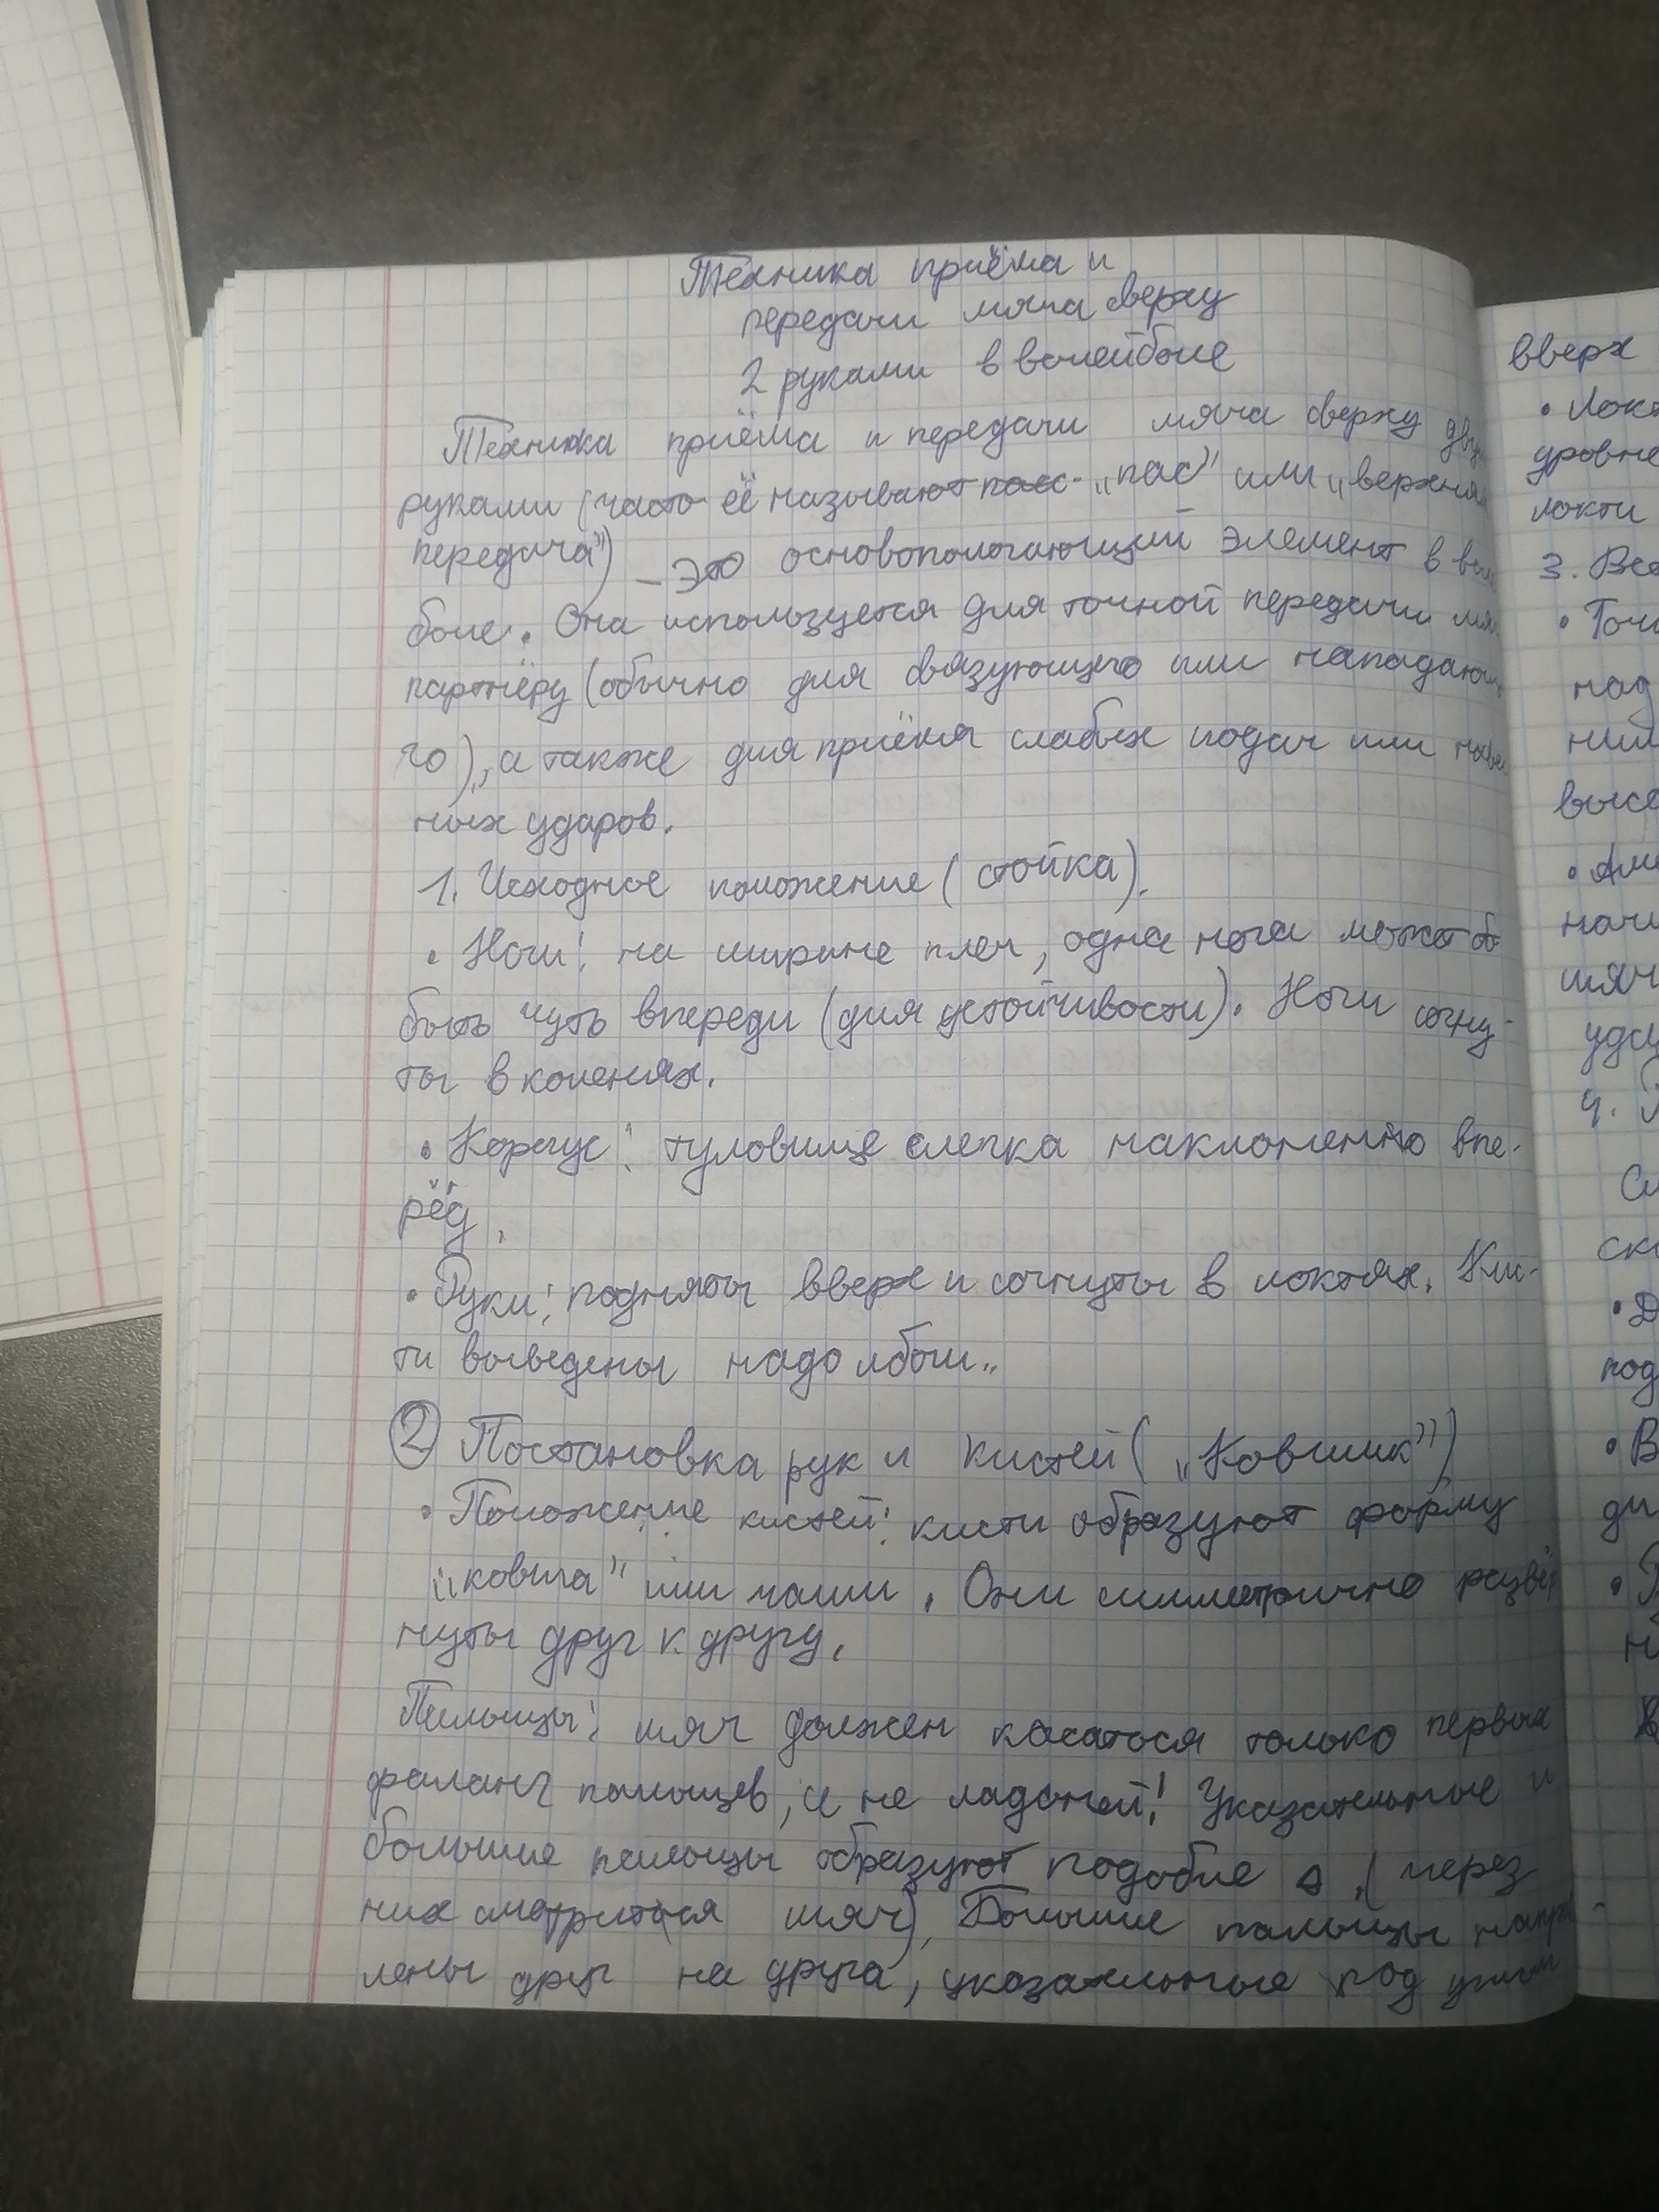 Техника приёма и
передачи мяча сверху
2 руками в волейболе
Техника приёма и передачи мяча сверху дву
руками (часто её называют пас "пас" или "верхняя
передача") – это основопологающий элемент в вол
боле. Она используется для точной передачи мяч
партнёру (обычно для связующего или нападающе
го), а также для приёма слабых подач или навес
ных ударов.
1. Исходное положение (стойка).
• Ноги: на ширине плеч, одна нога может б
быть чуть впереди (для устойчивости). Ноги согну-
ты в коленях.
• Корпус: туловище слегка наклоненно впе-
рёд.
• Руки: подняты вверх и согнуты в локтях. Кис-
ти выведены надо лбом.
2 Постановка рук и кистей ("Ковшик")
• Положение кистей: кисти образуют форму
"ковша" или чаши. Они симметрично развёр
нуты друг к другу.
Пальцы: мяч должен касаться только первых
фаланг пальцев, а не ладоней! Указательные и
большие пальцы образуют подобие Δ. (через
них смотриться мяч). Большие пальцы направ-
лены друг на друга, указательные под углом
вверх
• Локт
уровне
локти
3.
•
над
ним
высо
•
начи
мяч
удар
4.
ск
• Д
под
• В
ди